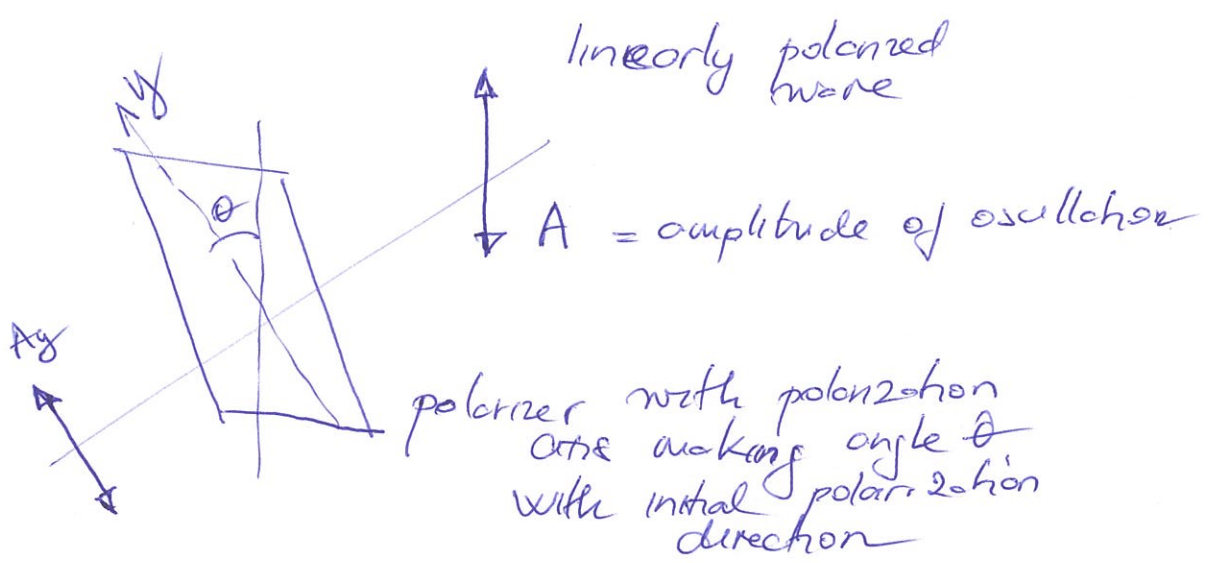 linearly polarized
wave
y
θ
A = amplitude of oscillation
Ay
polarizer with polarization
axis making angle θ
with initial polarization
direction